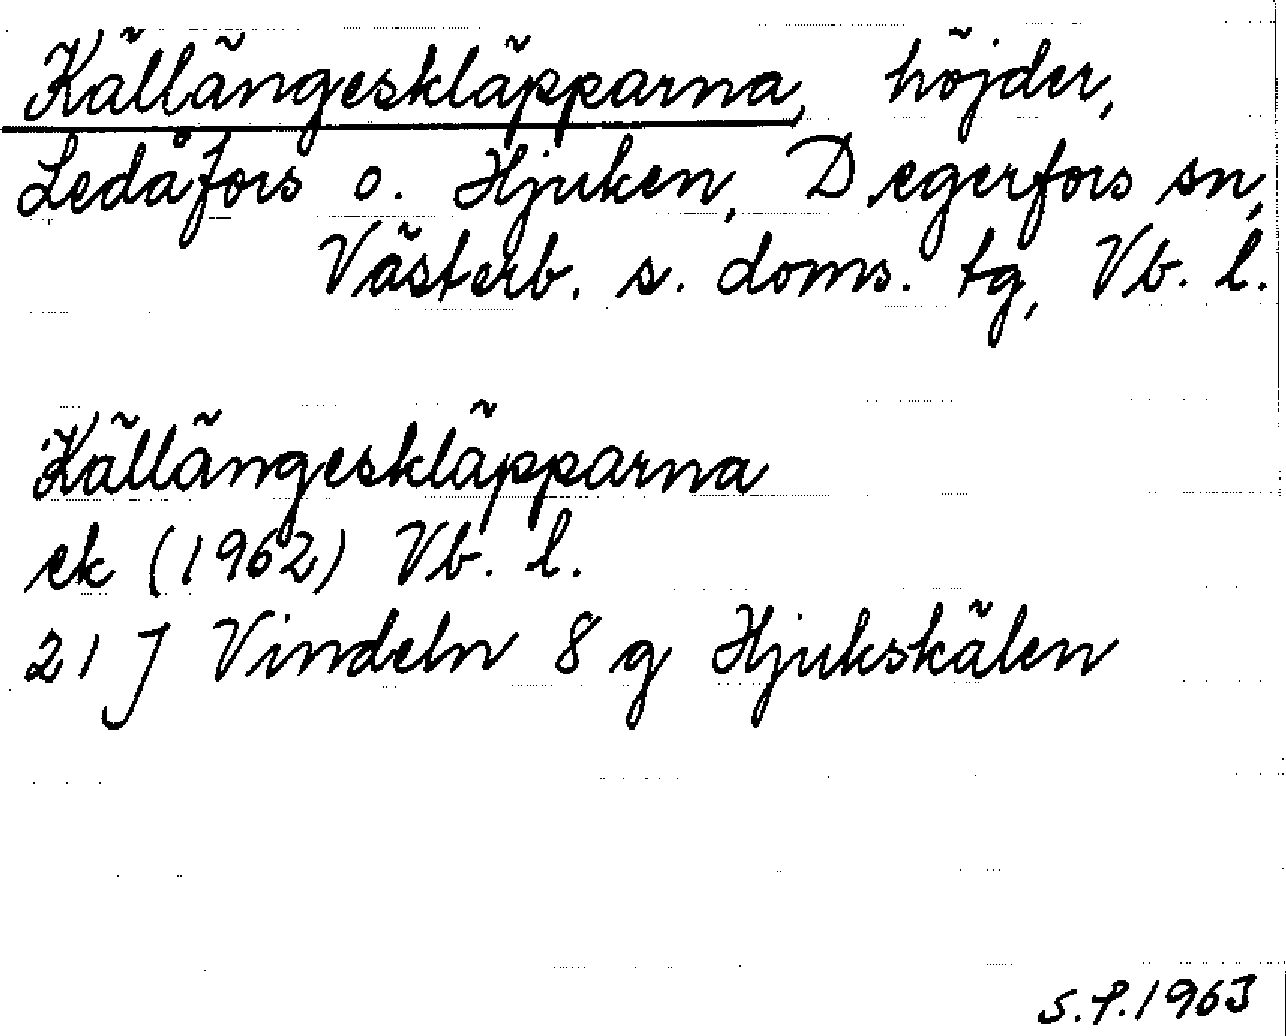 Källängeskläpparna, höjder,
Ledåfors o. Hjuken, Degerfors sn,
Västerb. s. doms. tg, Vb. l.
Källängeskläpparna
ek (1962) Vb. l.
21 J Vindeln 8 g Hjukskälen
S.P.1963